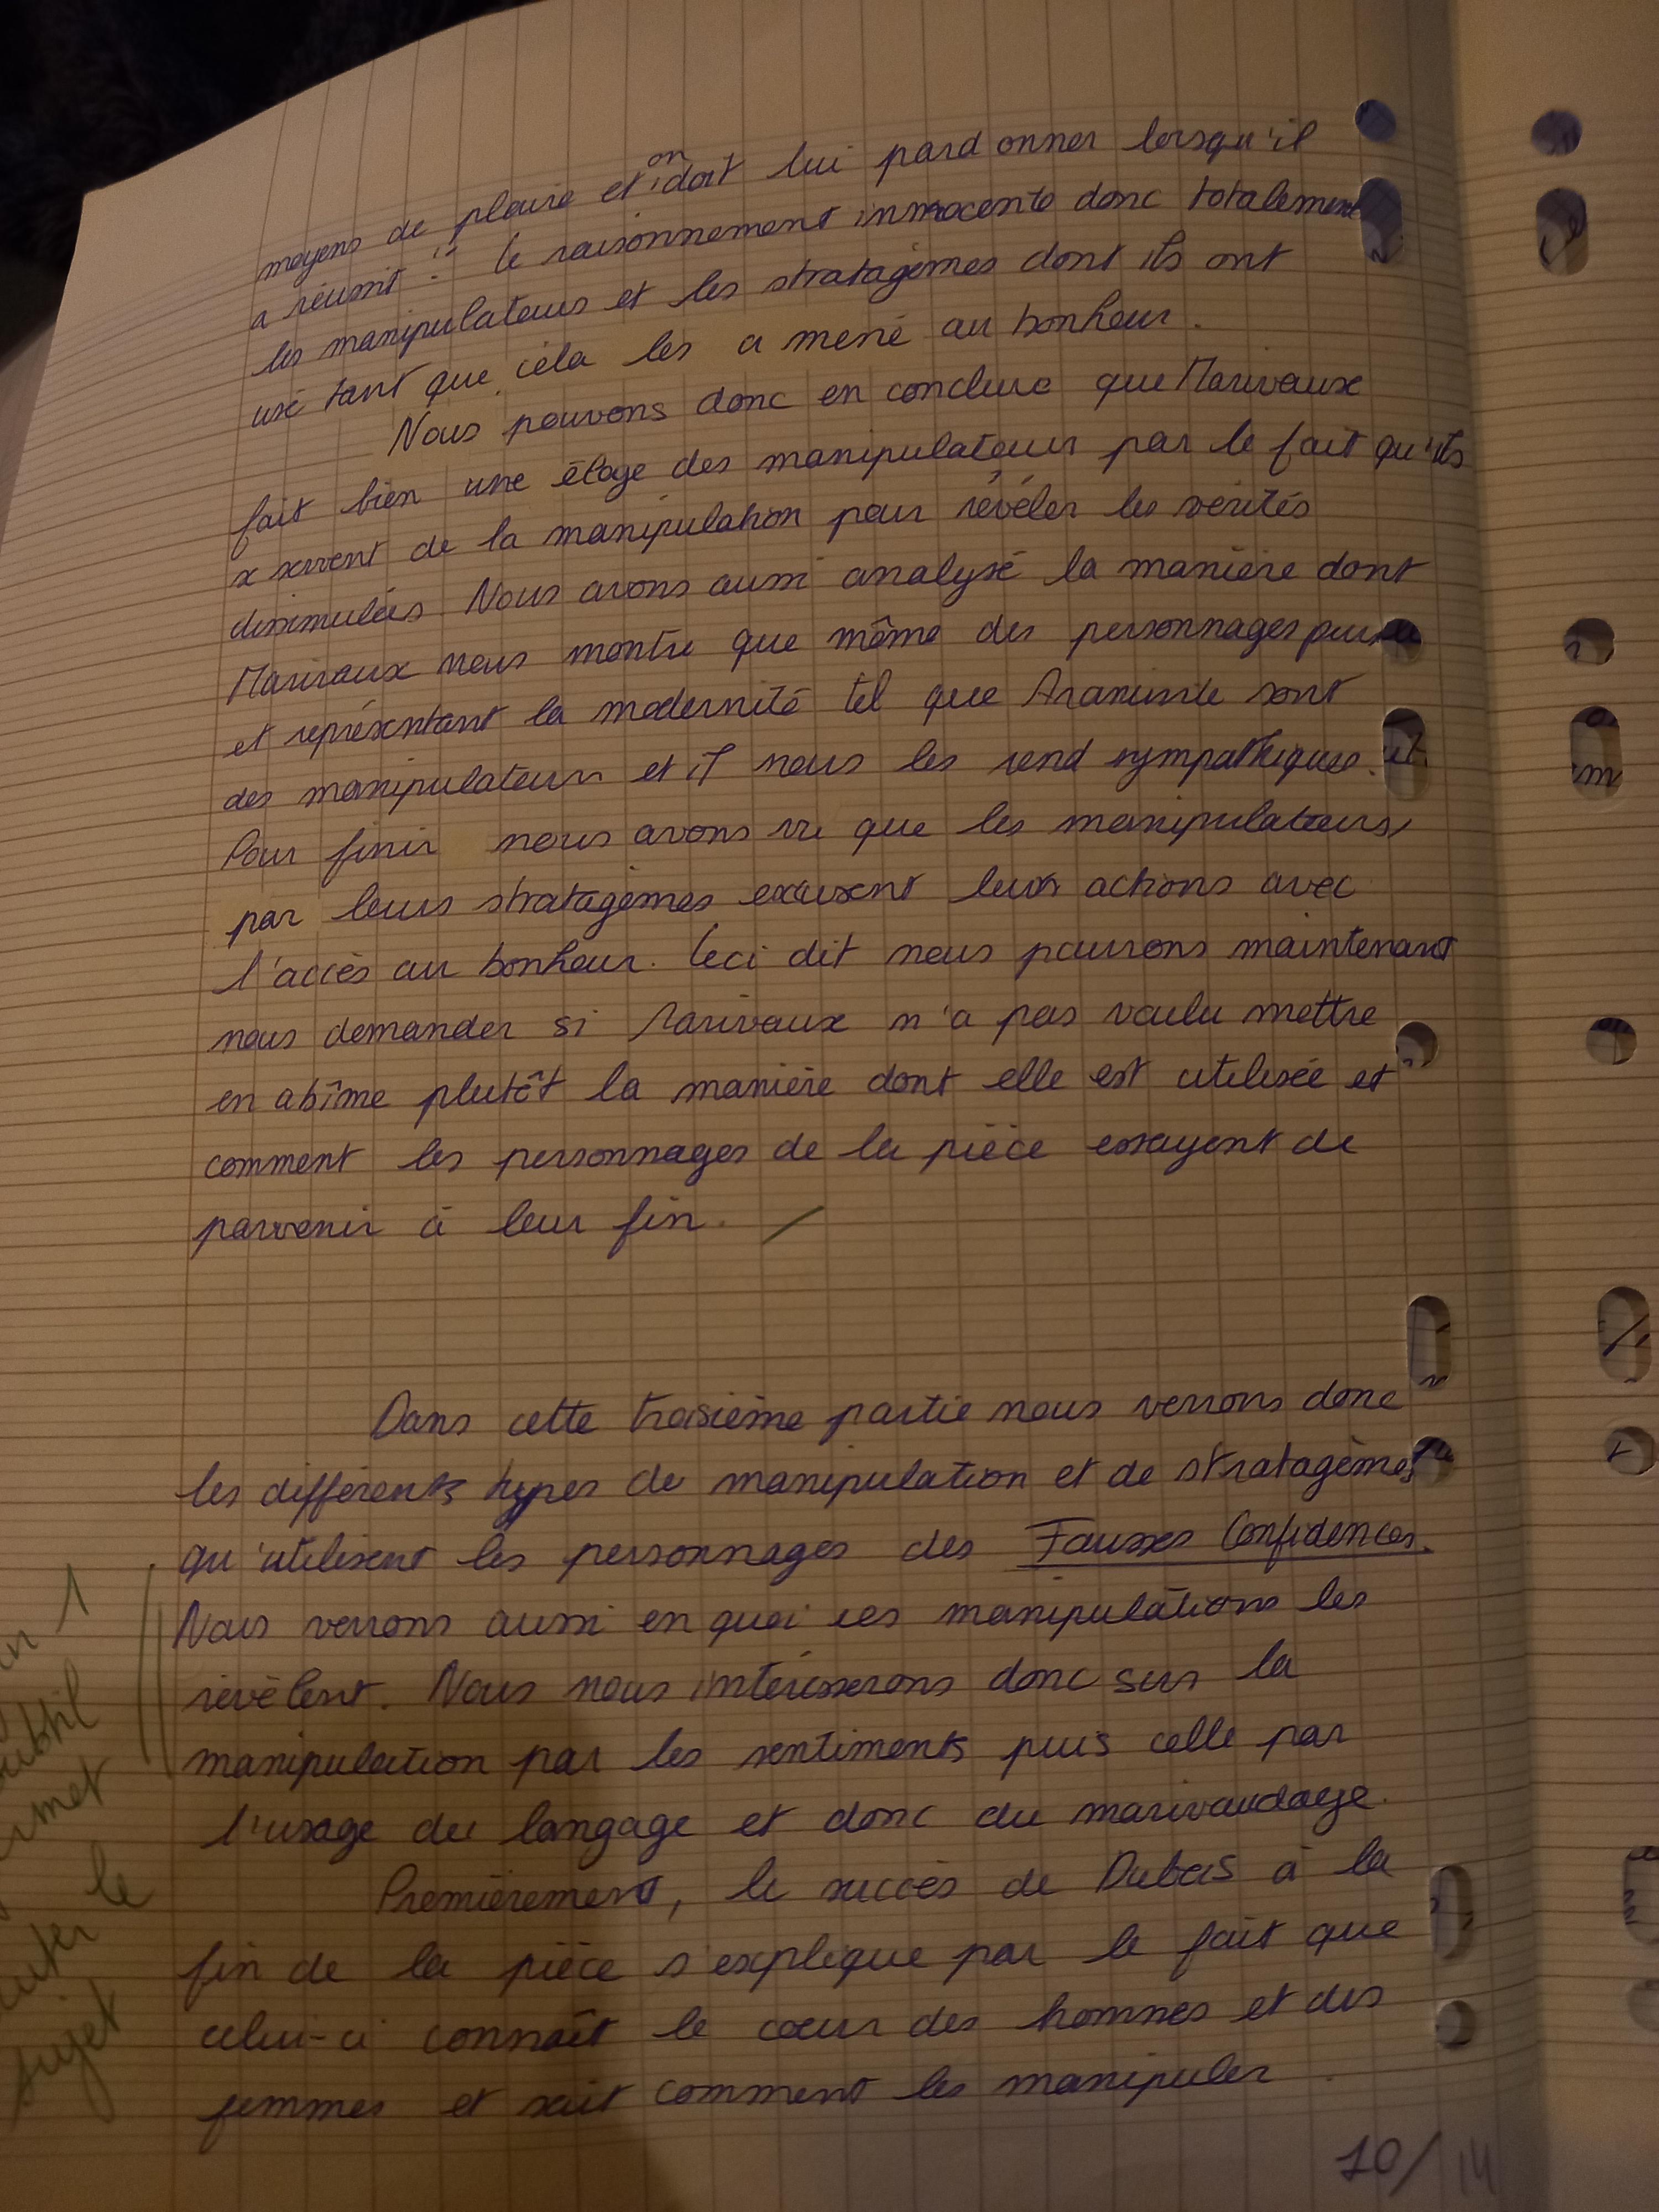 moyens de plaire et on doit lui pardonner lorsqu'il
a réussit ". Ce raisonnement innocente donc totalement
les manipulateurs et les stratagèmes dont ils ont
usé tant que cela les a mené au bonheur.
Nous pouvons donc en conclure que Marivaux
fait bien une éloge des manipulateurs par le fait qu'ils
se servent de la manipulation pour révéler les vérités
dissimulées. Nous avons aussi analysé la manière dont
Marivaux nous montre que même des personnages purs
et représentant la modernité tel que Araminte sont
des manipulateurs et il nous les rend sympathiques.
Pour finir nous avons vu que les manipulateurs,
par leurs stratagèmes excusent leurs actions avec
l'accès au bonheur. Ceci dit nous pourrons maintenant
nous demander si Marivaux n'a pas voulu mettre
en abîme plutôt la manière dont elle est utilisée et
comment les personnages de la pièce essayent de
parvenir à leur fin.
Dans cette troisième partie nous verrons donc
les différents types de manipulation et de stratagèmes
qu'utilisent les personnages des Fausses Confidences.
Nous verrons aussi en quoi ces manipulations les
révèlent. Nous nous intéresserons donc sur la
manipulation par les sentiments puis celle par
l'usage du langage et donc du marivaudage.
Premièrement, le succès de Dubois à la
fin de la pièce s'explique par le fait que
celui-ci connaît le cœur des hommes et des
femmes et sait comment les manipuler
le
sujet
10/14